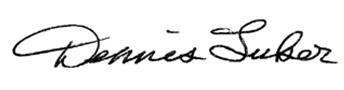 Dennis Luker